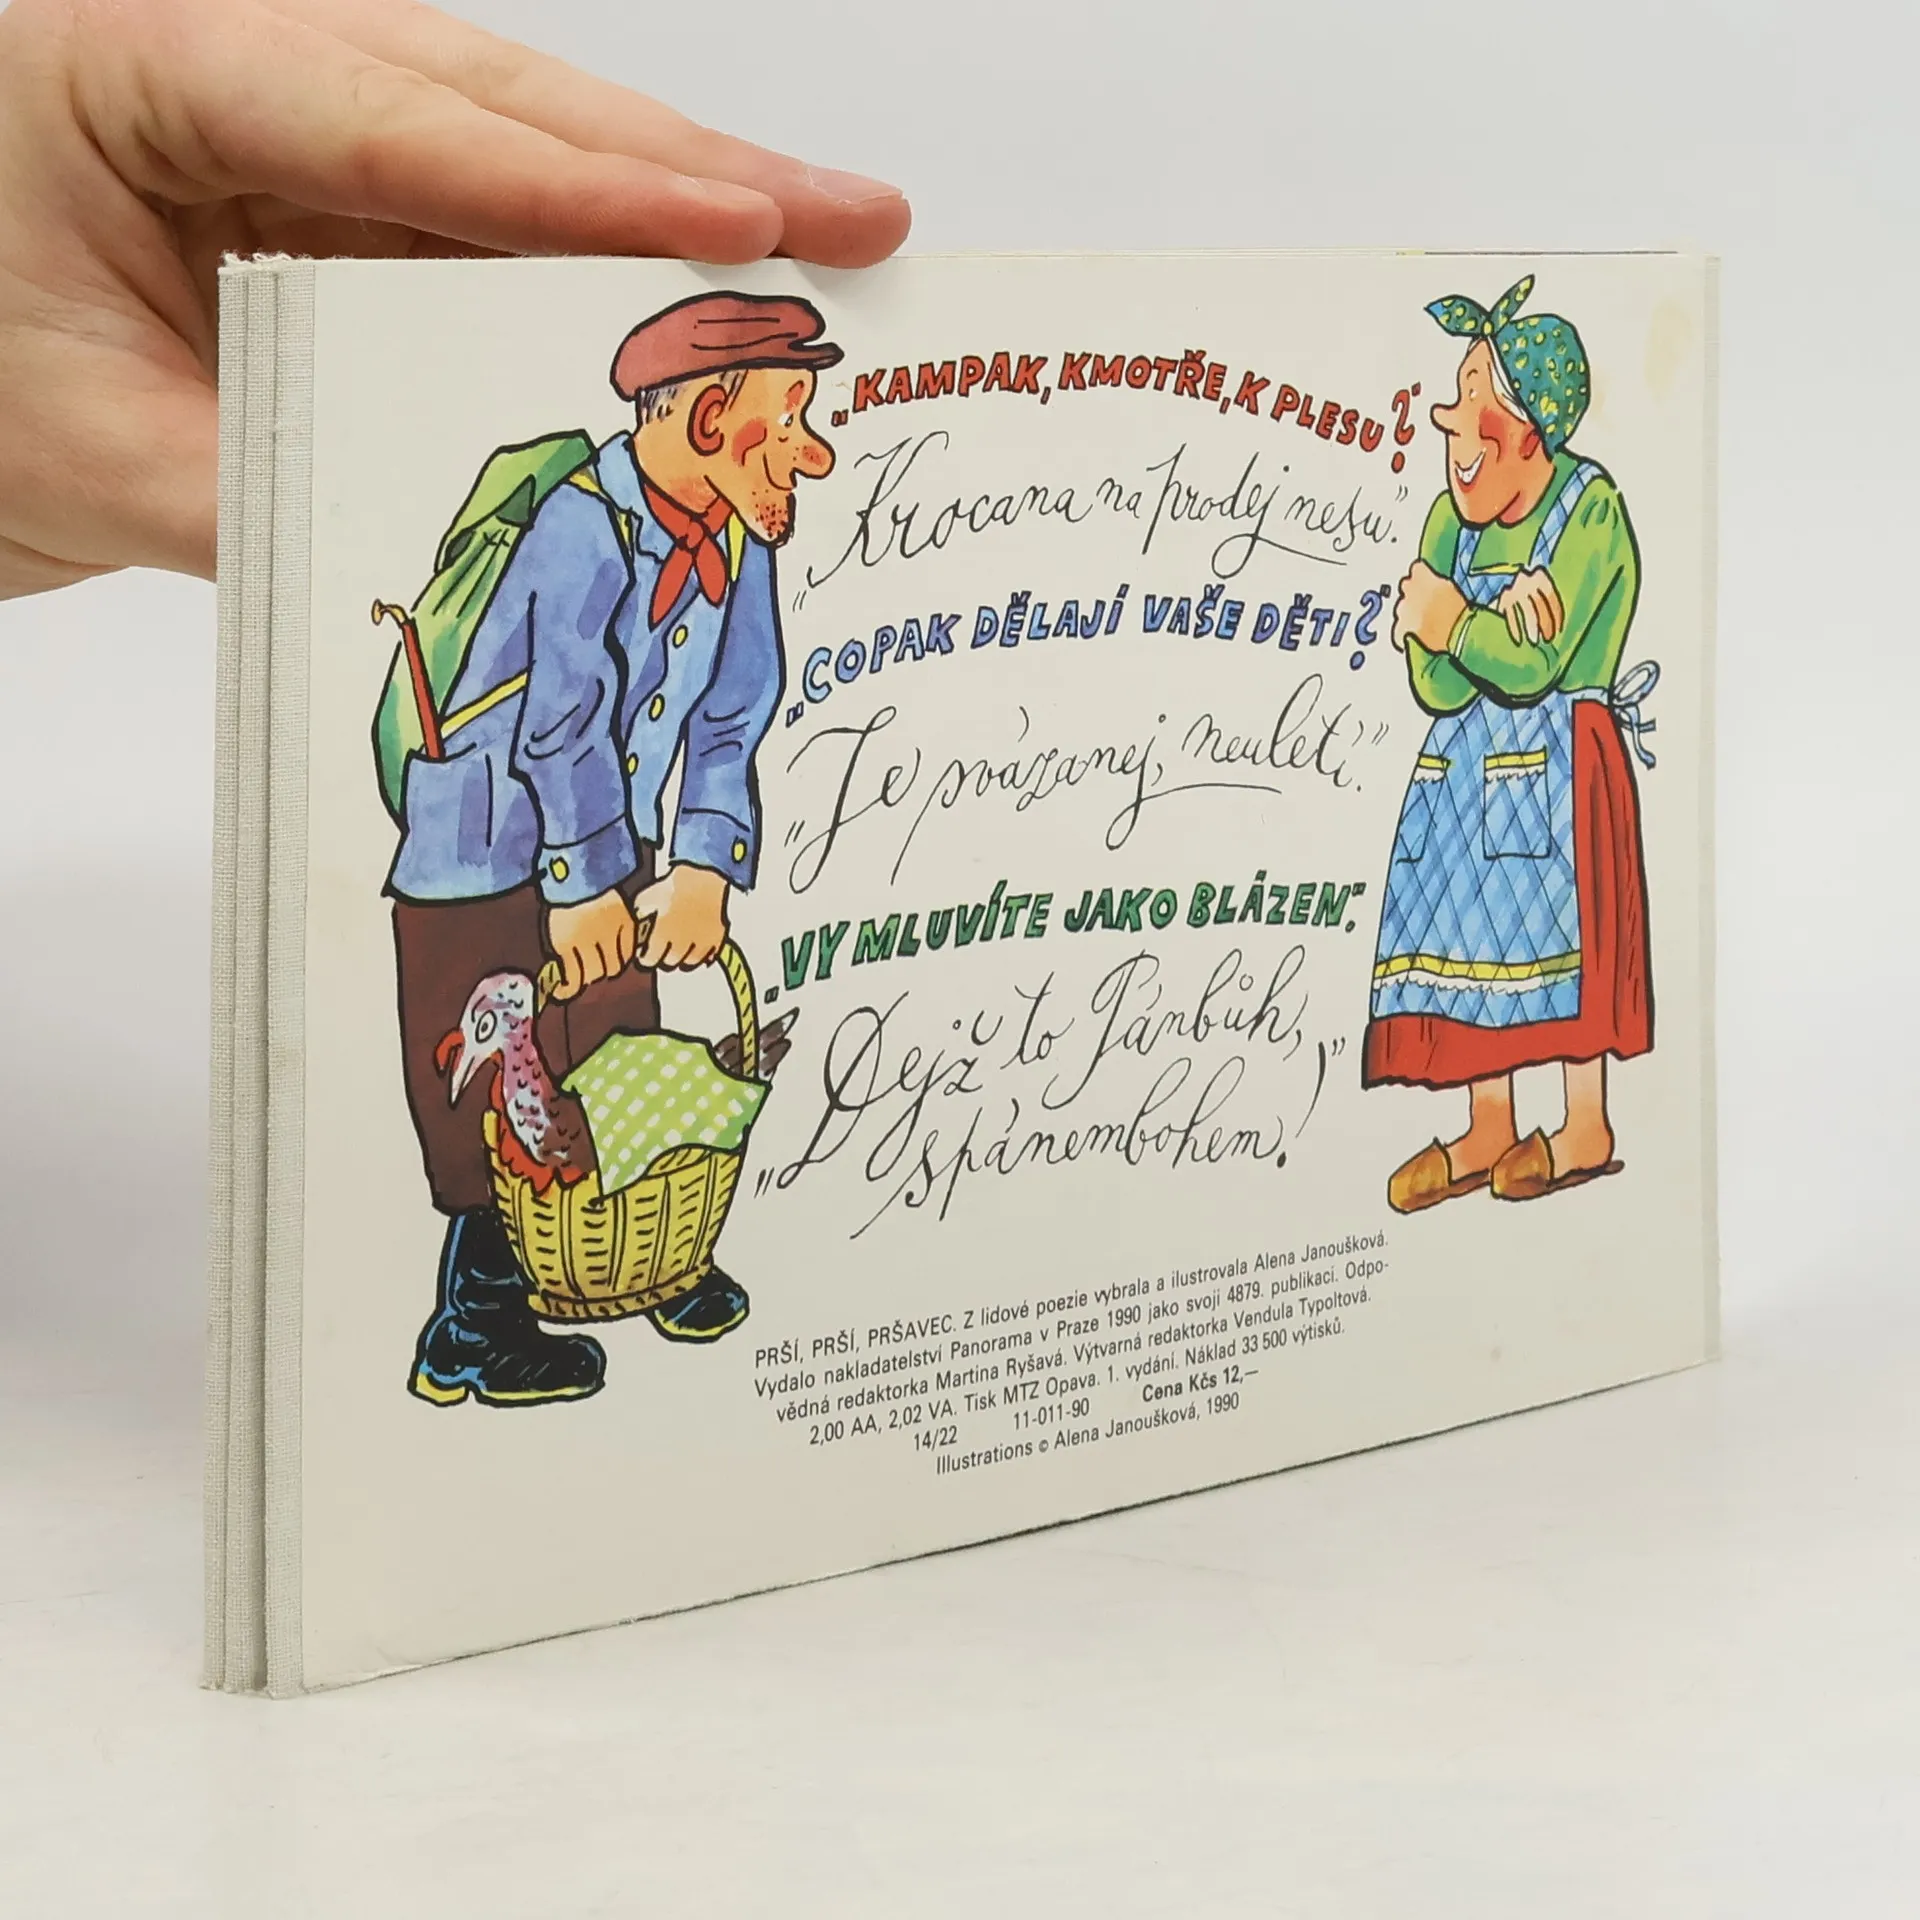 „KAMPAK, KMOTŘE, K PLESU?“
„Krocana na prodej nesu.“
„COPAK DĚLAJÍ VAŠE DĚTI?“
„Je svázanej, neuletí.“
„VY MLUVÍTE JAKO BLÁZEN“.
„Dejž to Pánbůh,
spánembohem!“
PRŠÍ, PRŠÍ, PRŠAVEC. Z lidové poezie vybrala a ilustrovala Alena Janoušková.
Vydalo nakladatelství Panorama v Praze 1990 jako svoji 4879. publikaci. Odpo-
vědná redaktorka Martina Ryšavá. Výtvarná redaktorka Vendula Typoltová.
2,00 AA, 2,02 VA. Tisk MTZ Opava. 1. vydání. Náklad 33 500 výtisků.
14/22 11-011-90 Cena Kčs 12,—
Illustrations © Alena Janoušková, 1990